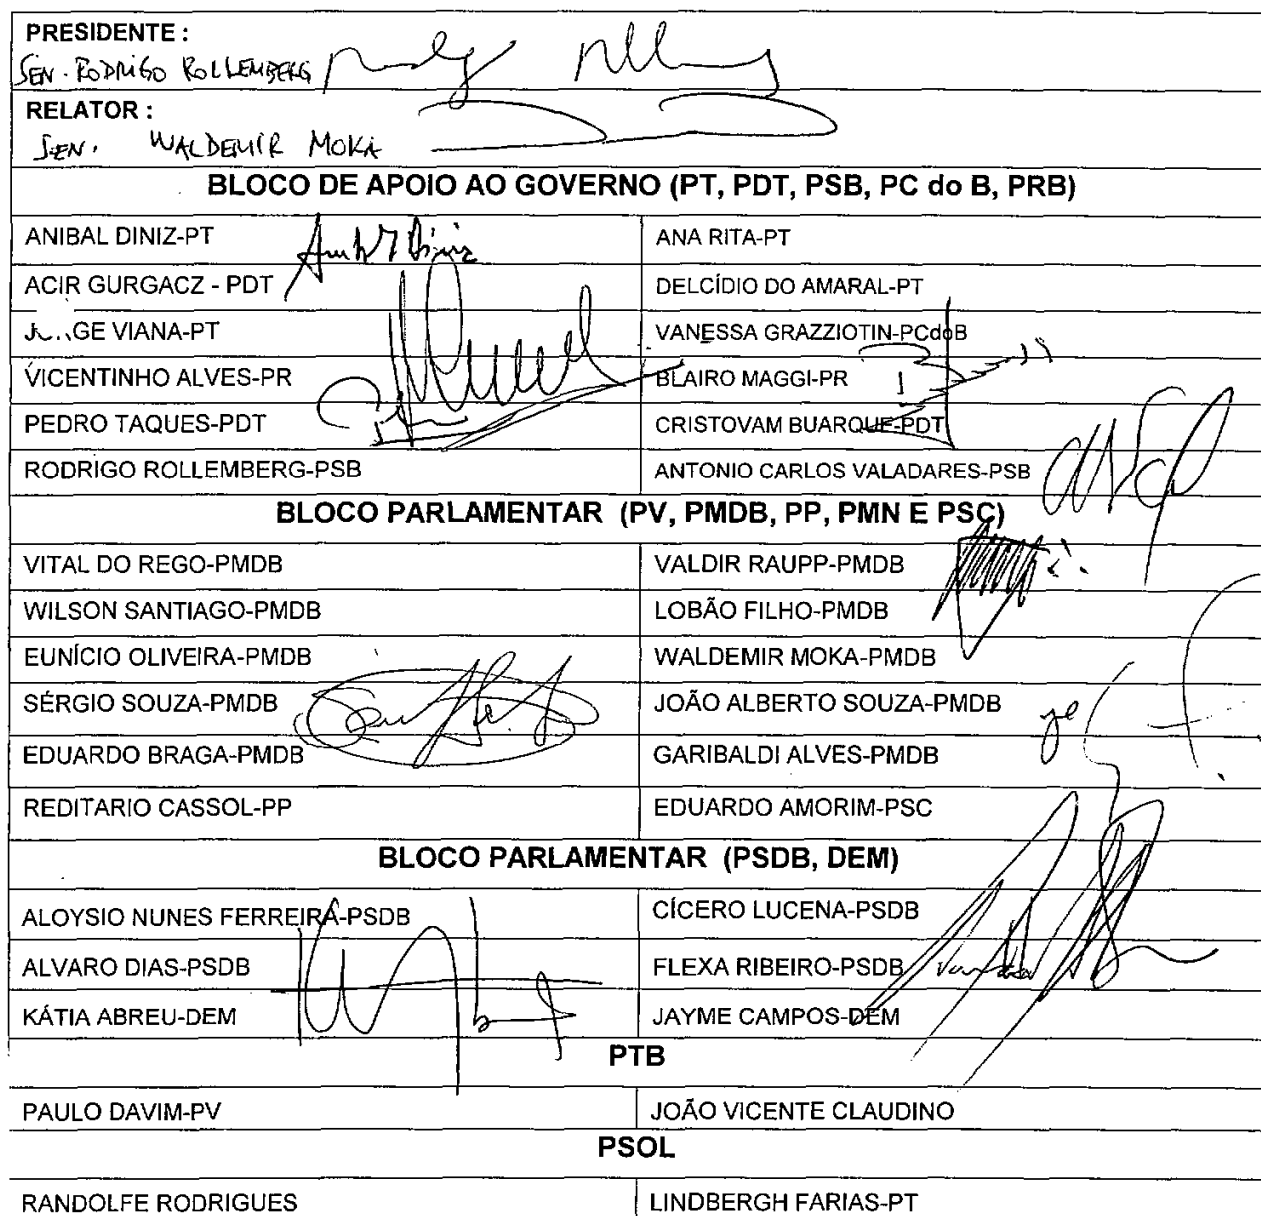 PRESIDENTE :
SEN. RODRIGO ROLLEMBERG
RELATOR :
SEN. WALDEMIR MOKA
BLOCO DE APOIO AO GOVERNO (PT, PDT, PSB, PC do B, PRB)
ANIBAL DINIZ-PT Anibal Diniz ANA RITA-PT
ACIR GURGACZ - PDT DELCÍDIO DO AMARAL-PT
VIANA-PT VANESSA GRAZZIOTIN-PCdoB
VICENTINHO ALVES-PR BLAIRO MAGGI-PR
PEDRO TAQUES-PDT CRISTOVAM BUARQUE-PDT
RODRIGO ROLLEMBERG-PSB ANTONIO CARLOS VALADARES-PSB
BLOCO PARLAMENTAR (PV, PMDB, PP, PMN E PSC)
VITAL DO REGO-PMDB VALDIR RAUPP-PMDB
WILSON SANTIAGO-PMDB LOBÃO FILHO-PMDB
EUNÍCIO OLIVEIRA-PMDB WALDEMIR MOKA-PMDB
SÉRGIO SOUZA-PMDB JOÃO ALBERTO SOUZA-PMDB
EDUARDO BRAGA-PMDB GARIBALDI ALVES-PMDB
REDITARIO CASSOL-PP EDUARDO AMORIM-PSC
BLOCO PARLAMENTAR (PSDB, DEM)
ALOYSIO NUNES FERREIRA-PSDB CÍCERO LUCENA-PSDB
ALVARO DIAS-PSDB FLEXA RIBEIRO-PSDB
KÁTIA ABREU-DEM JAYME CAMPOS-DEM
PTB
PAULO DAVIM-PV JOÃO VICENTE CLAUDINO
PSOL
RANDOLFE RODRIGUES LINDBERGH FARIAS-PT